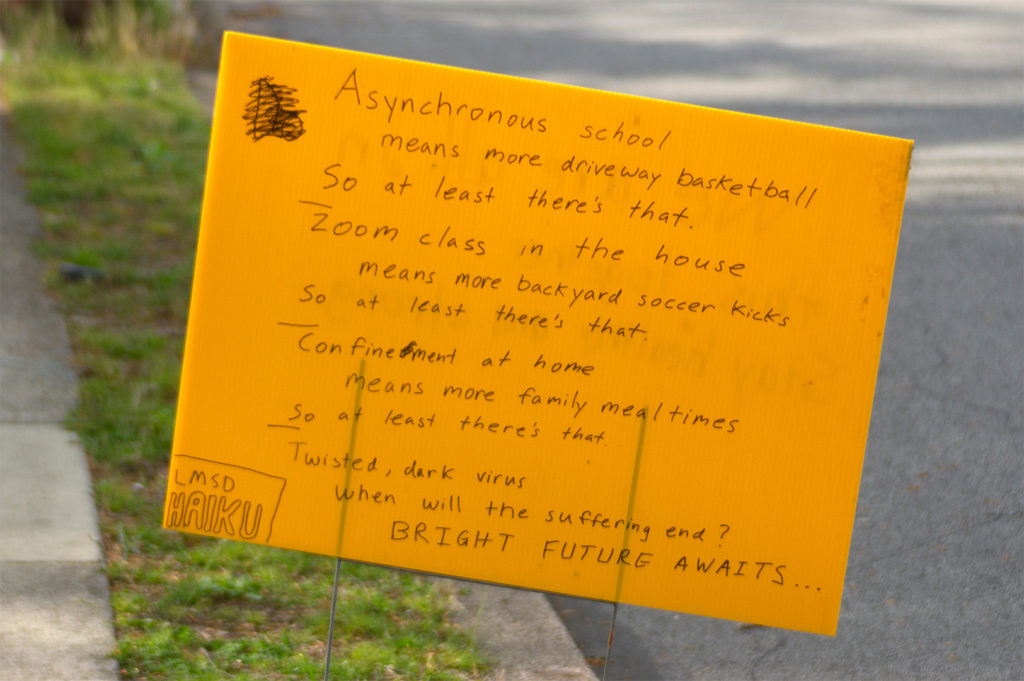 Asynchronous school
means more driveway basketball
So at least there's that.
Zoom class in the house
means more backyard soccer kicks
So at least there's that.
Confinement at home
means more family mealtimes
So at least there's that.
Twisted, dark virus
when will the suffering end?
BRIGHT FUTURE AWAITS...
LMSD
HAIKU